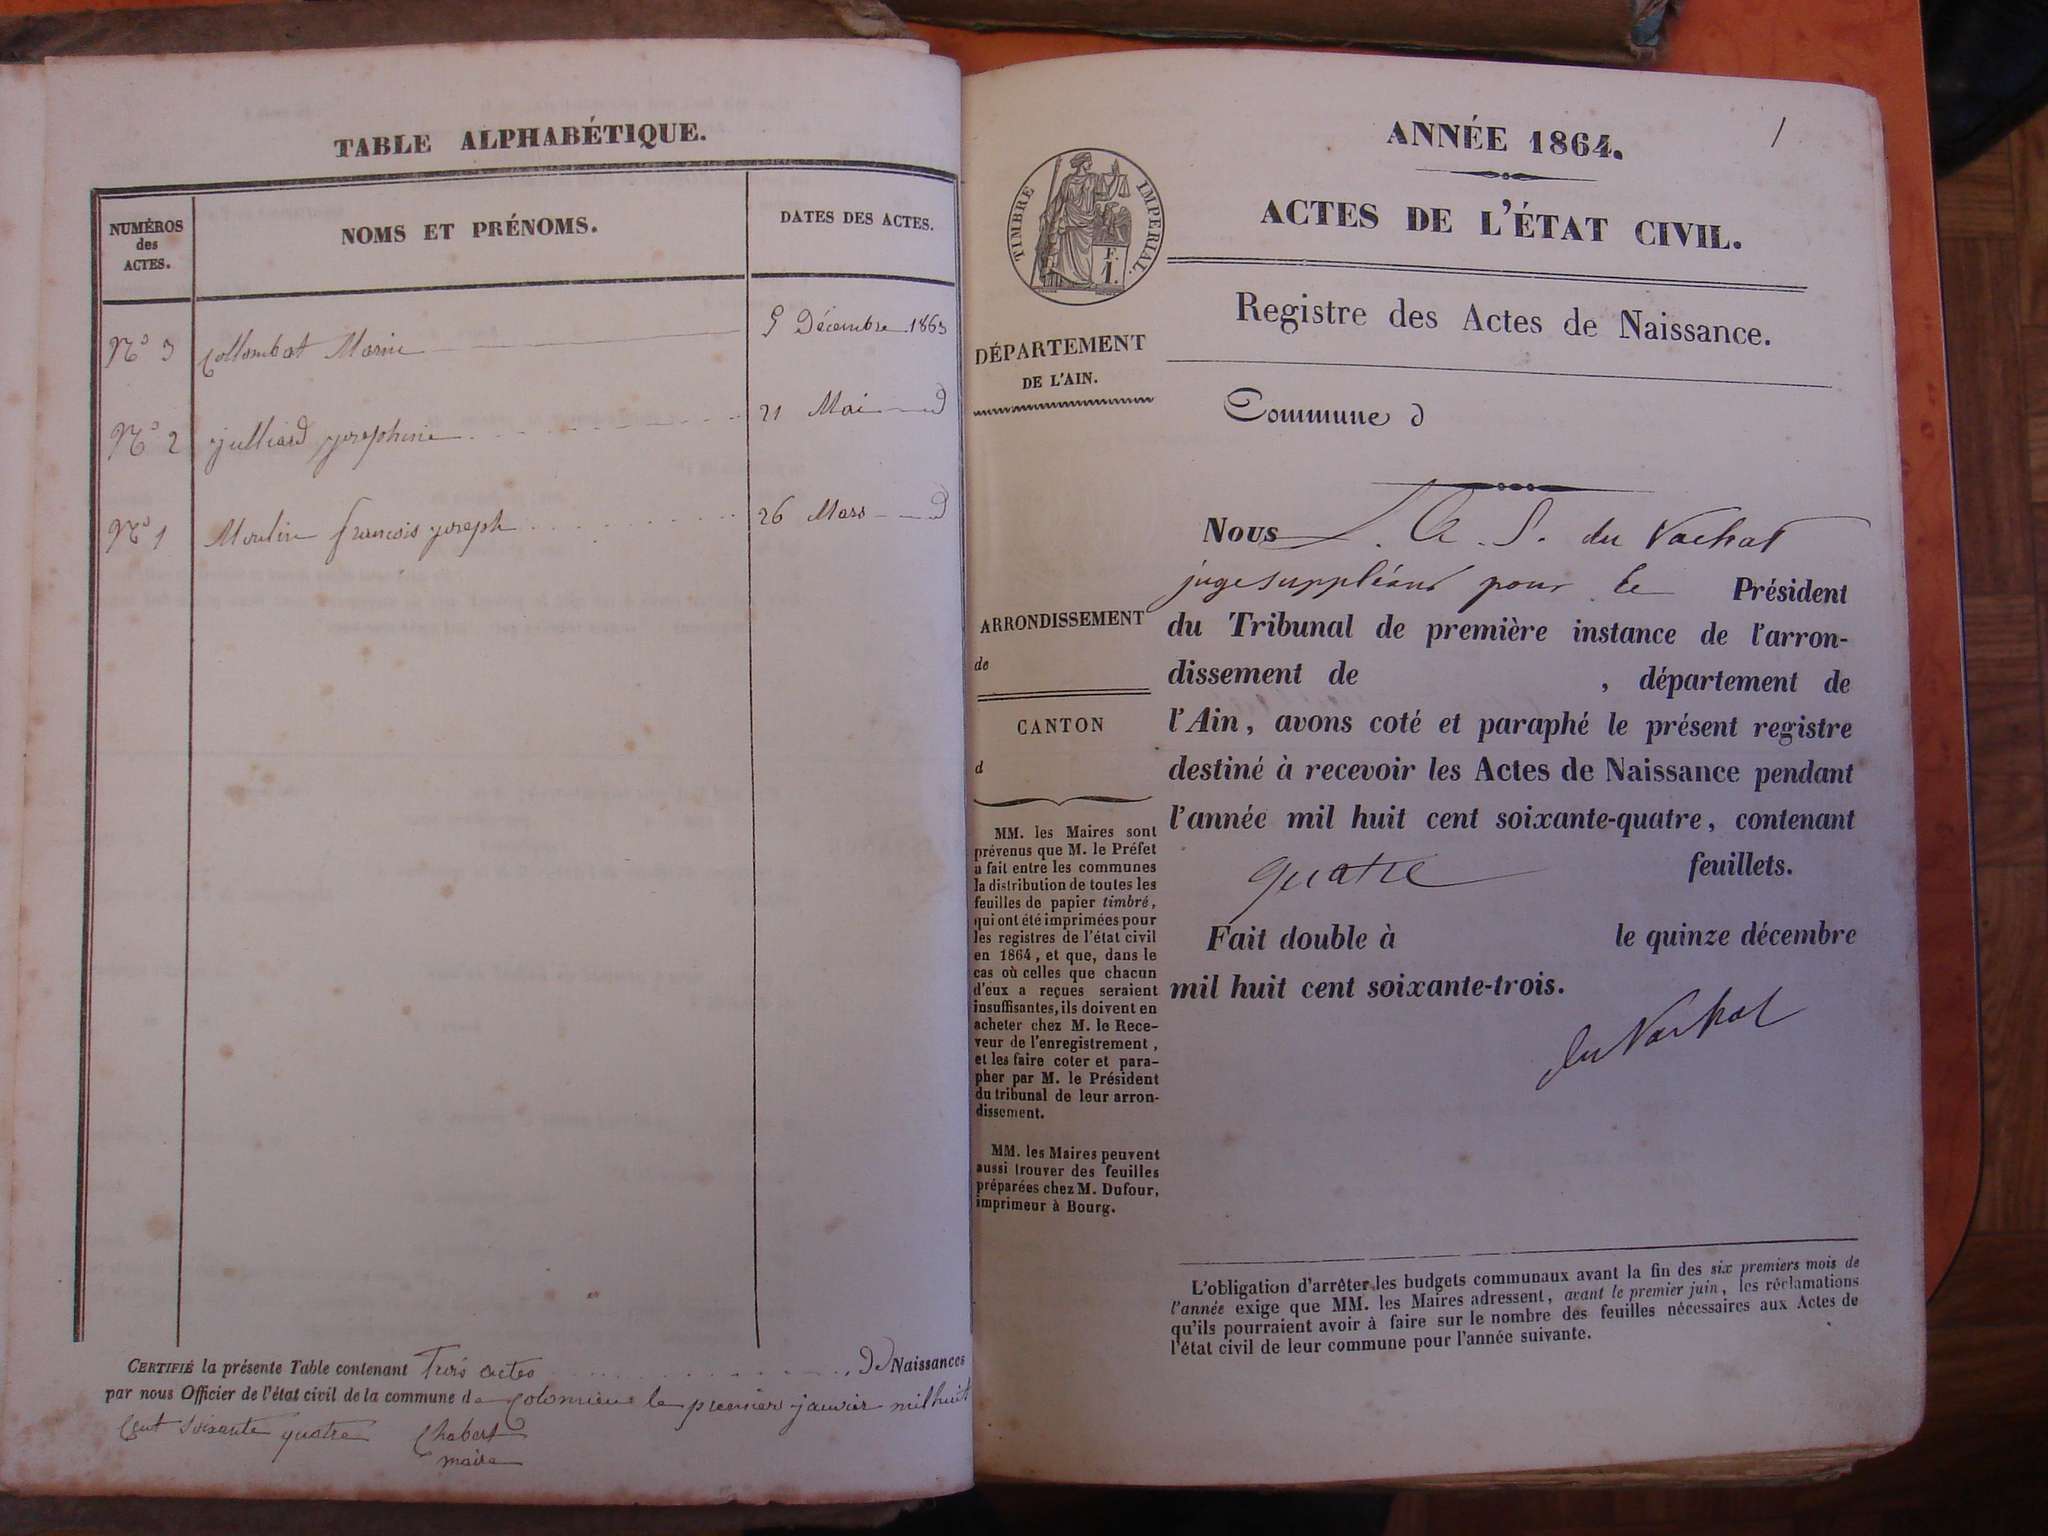 TABLE ALPHABÉTIQUE.
NUMÉROS
des
ACTES.
NOMS ET PRÉNOMS.
DATES DES ACTES.
N° 3 Collombat Marie 5 Décembre 1863
N° 2 julliard josephine 21 Mai d
N° 1 Moulin françois joseph 26 Mars d
CERTIFIÉ la présente Table contenant Trois actes de Naissances
par nous Officier de l'état civil de la commune de Colomieu le premier janvier mil huit
Cent soixante quatre Chabert
maire
1
ANNÉE 1864.
ACTES DE L'ÉTAT CIVIL.
TIMBRE IMPERIAL.
Registre des Actes de Naissance.
DÉPARTEMENT
DE L'AIN.
Commune d
ARRONDISSEMENT
de
CANTON
d
MM. les Maires sont
prévenus que M. le Préfet
a fait entre les communes
la distribution de toutes les
feuilles de papier timbré,
qui ont été imprimées pour
les registres de l'état civil
en 1864, et que, dans le
cas où celles que chacun
d'eux a reçues seraient
insuffisantes, ils doivent en
acheter chez M. le Rece-
veur de l'enregistrement,
et les faire coter et para-
pher par M. le Président
du tribunal de leur arron-
dissement.
MM. les Maires peuvent
aussi trouver des feuilles
préparées chez M. Dufour,
imprimeur à Bourg.
Nous du Vachat
juge suppléant pour le Président
du Tribunal de première instance de l'arron-
dissement de , département de
l'Ain, avons coté et paraphé le présent registre
destiné à recevoir les Actes de Naissance pendant
l'année mil huit cent soixante-quatre, contenant
quatre feuillets.
Fait double à le quinze décembre
mil huit cent soixante-trois.
du Vachat
L'obligation d'arrêter les budgets communaux avant la fin des six premiers mois de
l'année exige que MM. les Maires adressent, avant le premier juin, les réclamations
qu'ils pourraient avoir à faire sur le nombre des feuilles nécessaires aux Actes de
l'état civil de leur commune pour l'année suivante.